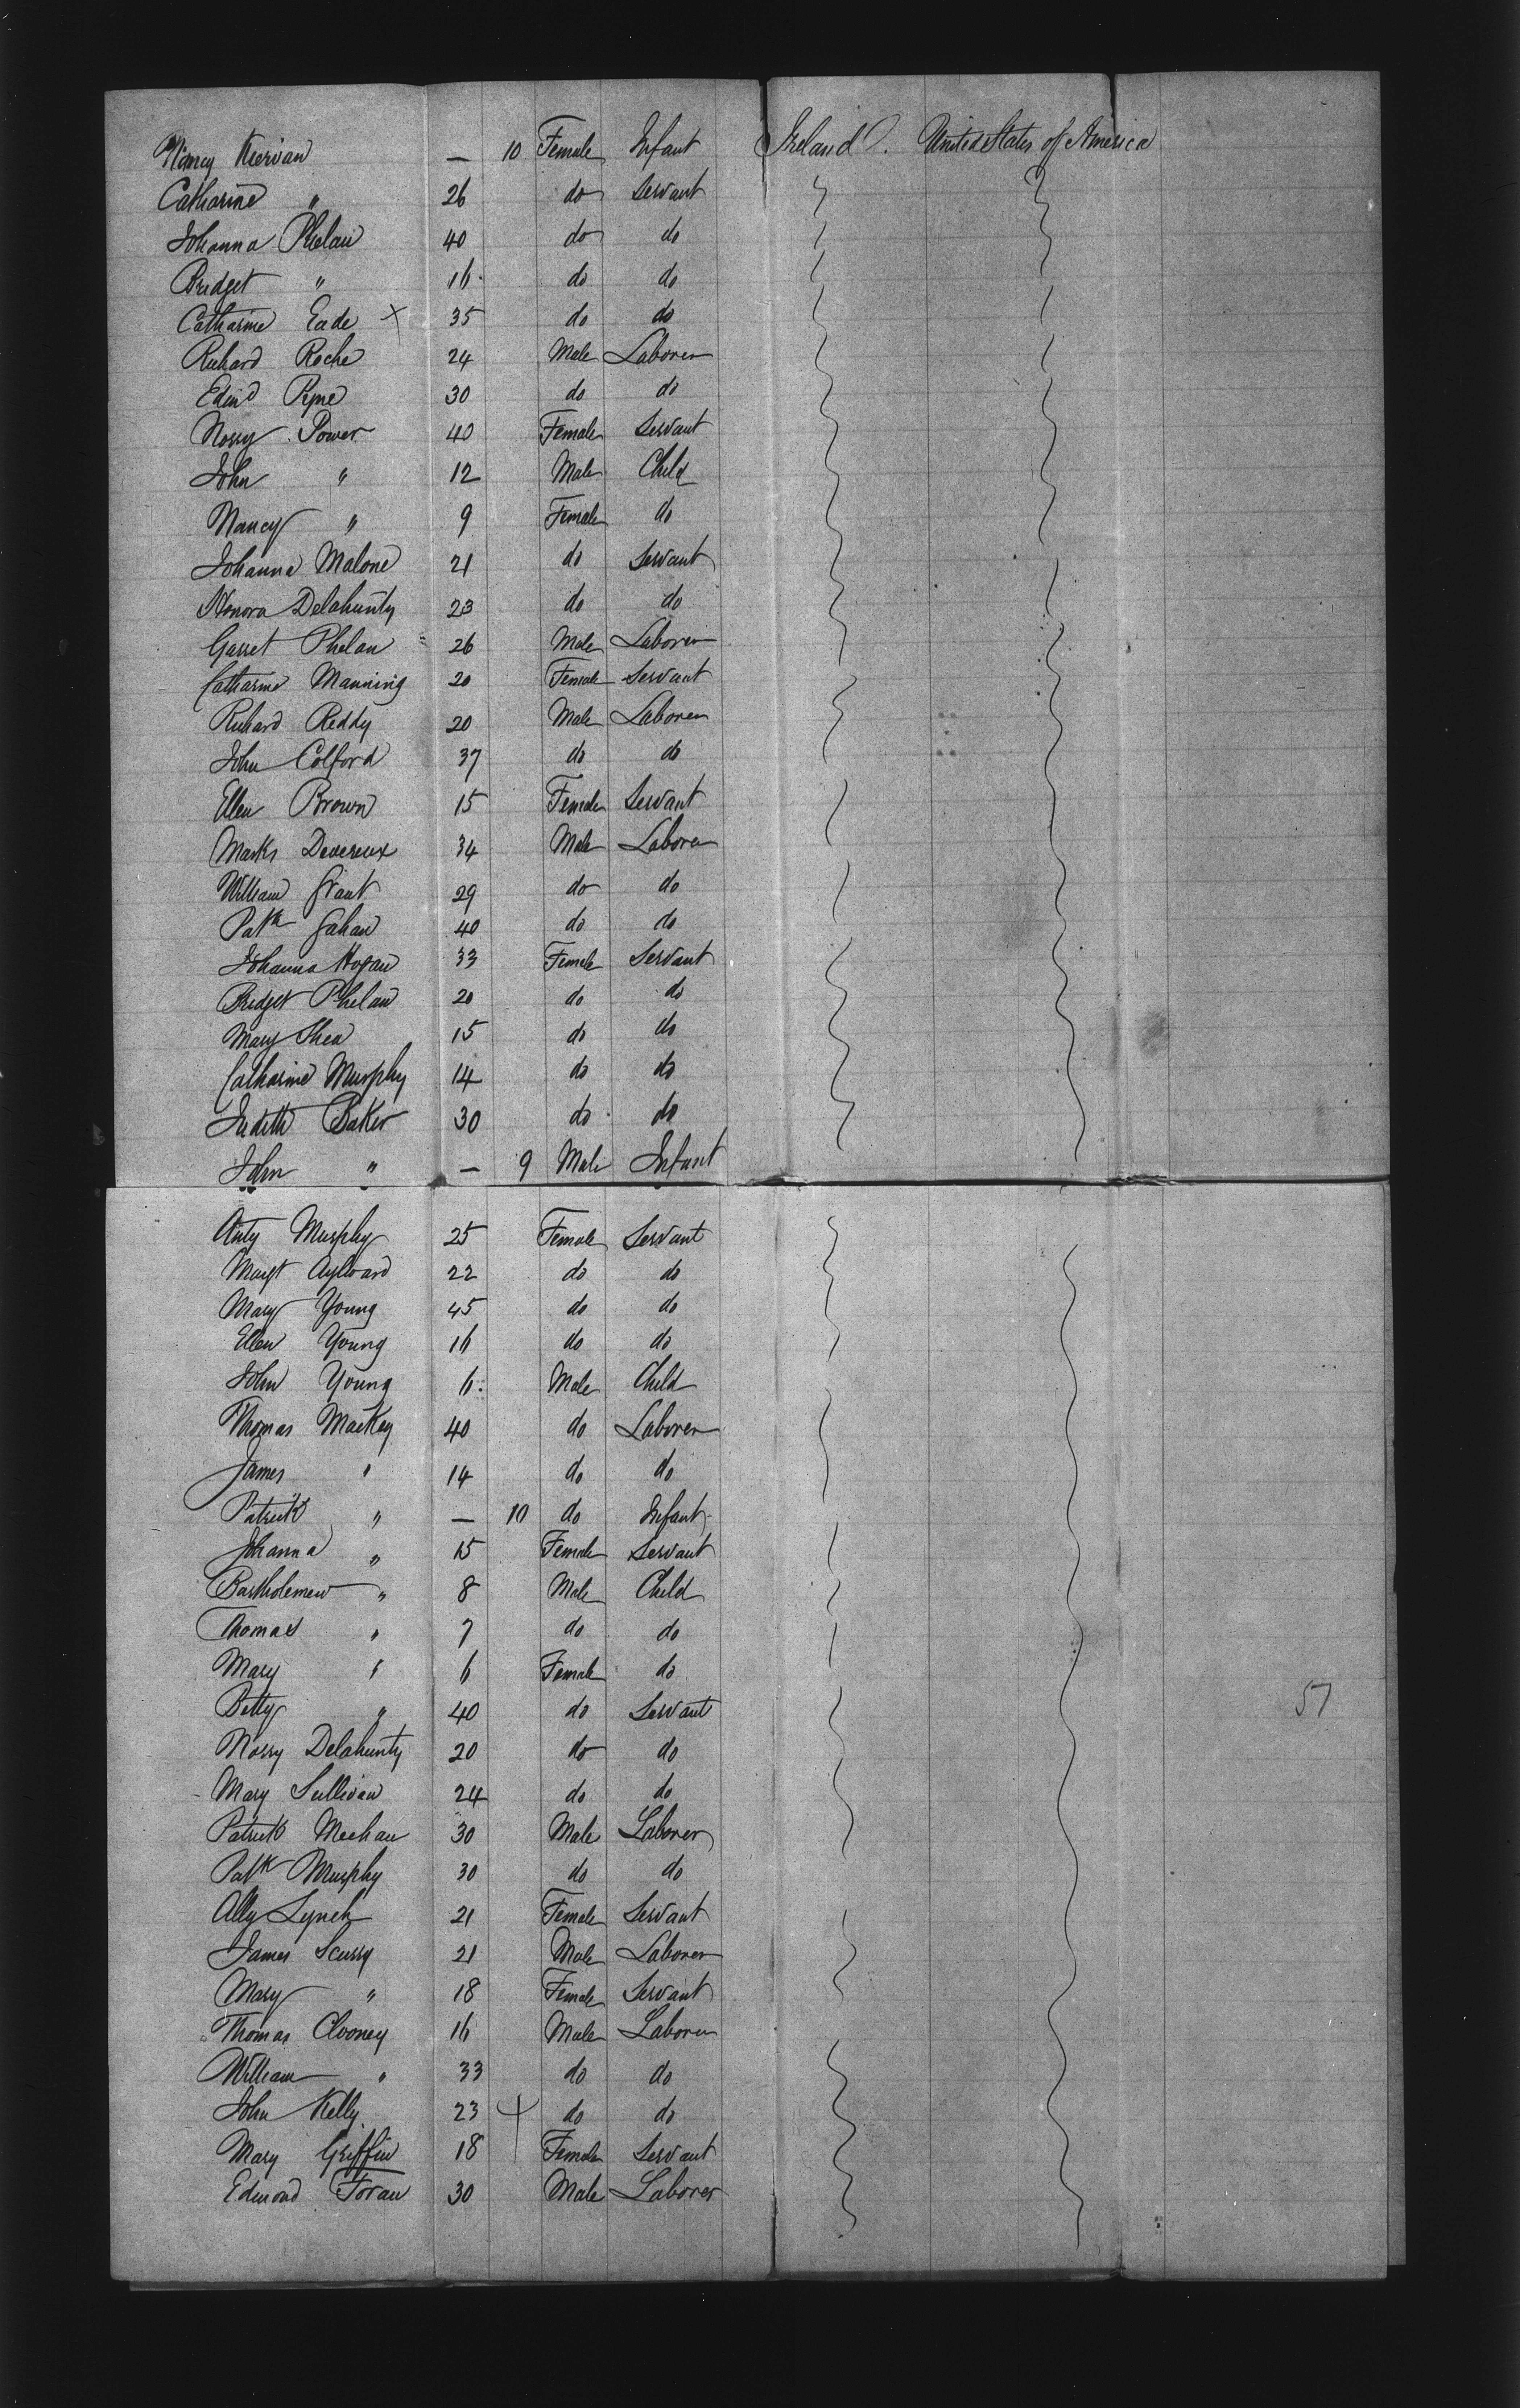 Nancy Kiervan — 10 Female Infant Ireland United States of America
Catharine " 26 do Servant
Johanna Phelan 40 do do
Bridget " 16 do do
Catharine Eade × 35 do do
Richard Roche 24 Male Laborer
Edmd Ryne 30 do do
Norry Power 40 Female Servant
John " 12 Male Child
Nancy " 9 Female do
Johanna Malone 21 do Servant
Honora Delahunty 23 do do
Garret Phelan 26 Male Laborer
Catharine Manning 20 Female Servant
Richard Reddy 20 Male Laborer
John Colford 37 do do
Ellen Brown 15 Female Servant
Marks Devereux 34 Male Laborer
William Grant 29 do do
Patk Gahan 40 do do
Johanna Hogan 33 Female Servant
Bridget Phelan 20 do do
Mary Shea 15 do do
Catharine Murphy 14 do do
Judith Baker 30 do do
John " — 9 Male Infant
Anty Murphy 25 Female Servant
Margt Aylward 22 do do
Mary Young 45 do do
Ellen Young 16 do do
John Young 6 Male Child
Thomas Mackey 40 do Laborer
James " 14 do do
Patrick " — 10 do Infant
Johanna " 15 Female Servant
Bartholemew " 8 Male Child
Thomas " 7 do do
Mary " 6 Female do
Betty " 40 do Servant 57
Norry Delahunty 20 do do
Mary Sullivan 24 do do
Patrick Meehan 30 Male Laborer
Patk Murphy 30 do do
Ally Lynch 21 Female Servant
James Scurry 21 Male Laborer
Mary " 18 Female Servant
Thomas Clooney 16 Male Laborer
William " 33 do do
John Kelly 23 do do
Mary Griffin 18 Female Servant
Edmond Foran 30 Male Laborer